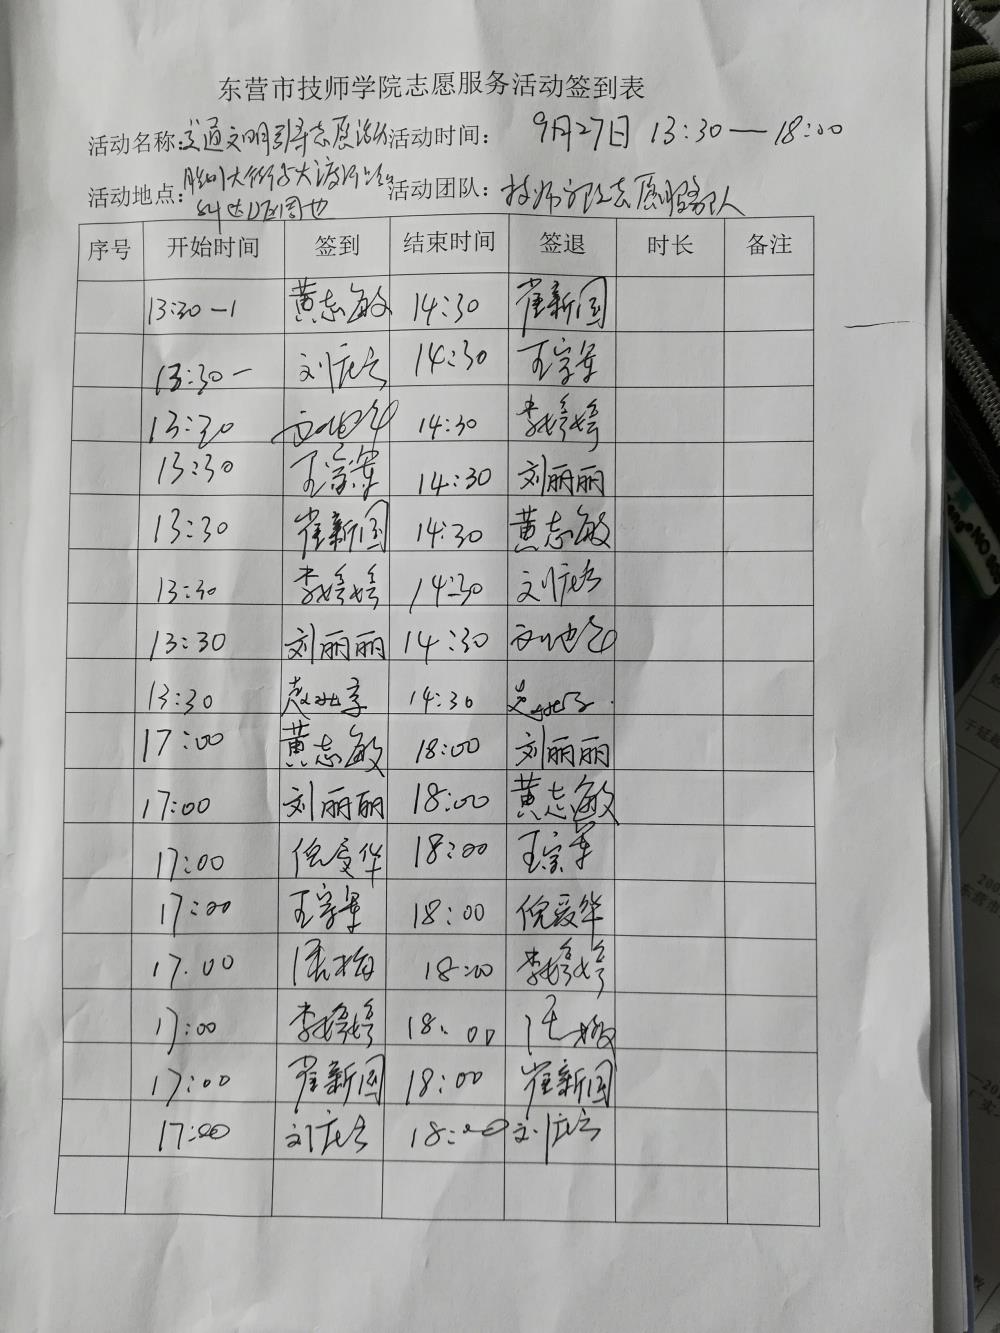 东营市技师学院志愿服务活动签到表
活动名称:交通文明引导志愿活动 活动时间: 9月27日 13:30—18:00
活动地点: 胜利大街与大渡河路 活动团队: 技师学院志愿服务队
周边
序号 开始时间 签到 结束时间 签退 时长 备注
13:30-1 黄志敏 14:30 崔新国
13:30- 刘庆 14:30 王宗军
13:30 14:30 李婷婷
13:30 王宗军 14:30 刘丽丽
13:30 崔新国 14:30 黄志敏
13:30 李婷婷 14:30 刘庆
13:30 刘丽丽 14:30
13:30 14:30
17:00 黄志敏 18:00 刘丽丽
17:00 刘丽丽 18:00 黄志敏
17:00 倪爱华 18:00 王宗军
17:00 王宗军 18:00 倪爱华
17.00 18:00 李婷婷
17:00 李婷婷 18:00
17:00 崔新国 18:00 崔新国
17:00 刘庆 18:00 刘庆